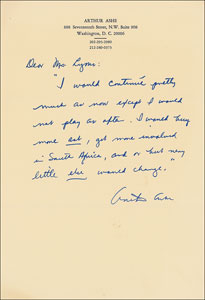 ARTHUR ASHE
Seventeenth Street, N.W. Suite 908
Washington, D.C. 20006
Dear Mr. Lyons:
"I would continue pretty
much as now except I would
not play as often. I would buy
more art, get more involved
in South Africa, and or but very
little else would change."
Arthur Ashe